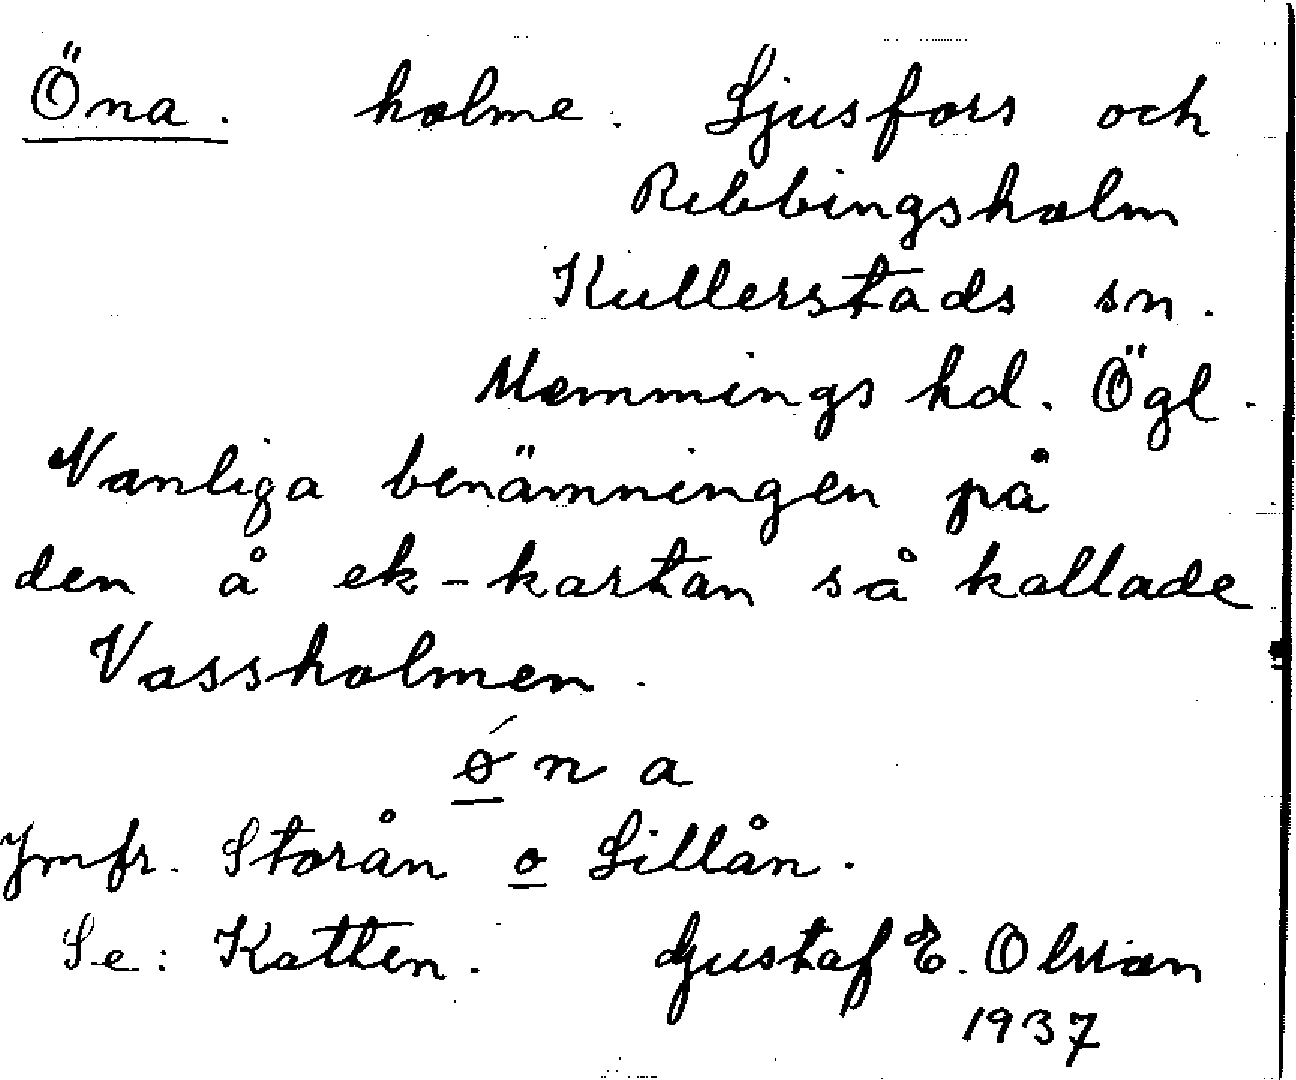 Öna. holme. Ljusfors och
Ribbingsholm
Kullerstads sn.
Memmings hd. Ögl.
Vanliga benämningen på
den å ek-kartan så kallade
Vassholmen.
ǿ n a
Jmfr. Storån o Lillån.
Se: Katten. Gustaf E. Olsson
1937